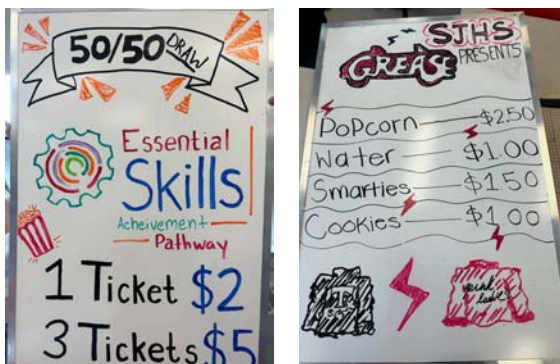 50/50 DRAW
Essential
Skills
Acheivement
Pathway
1 Ticket $2
3 Tickets $5
SJHS
GREASE PRESENTS
Popcorn $2.50
Water $1.00
Smarties $1.50
Cookies $1.00